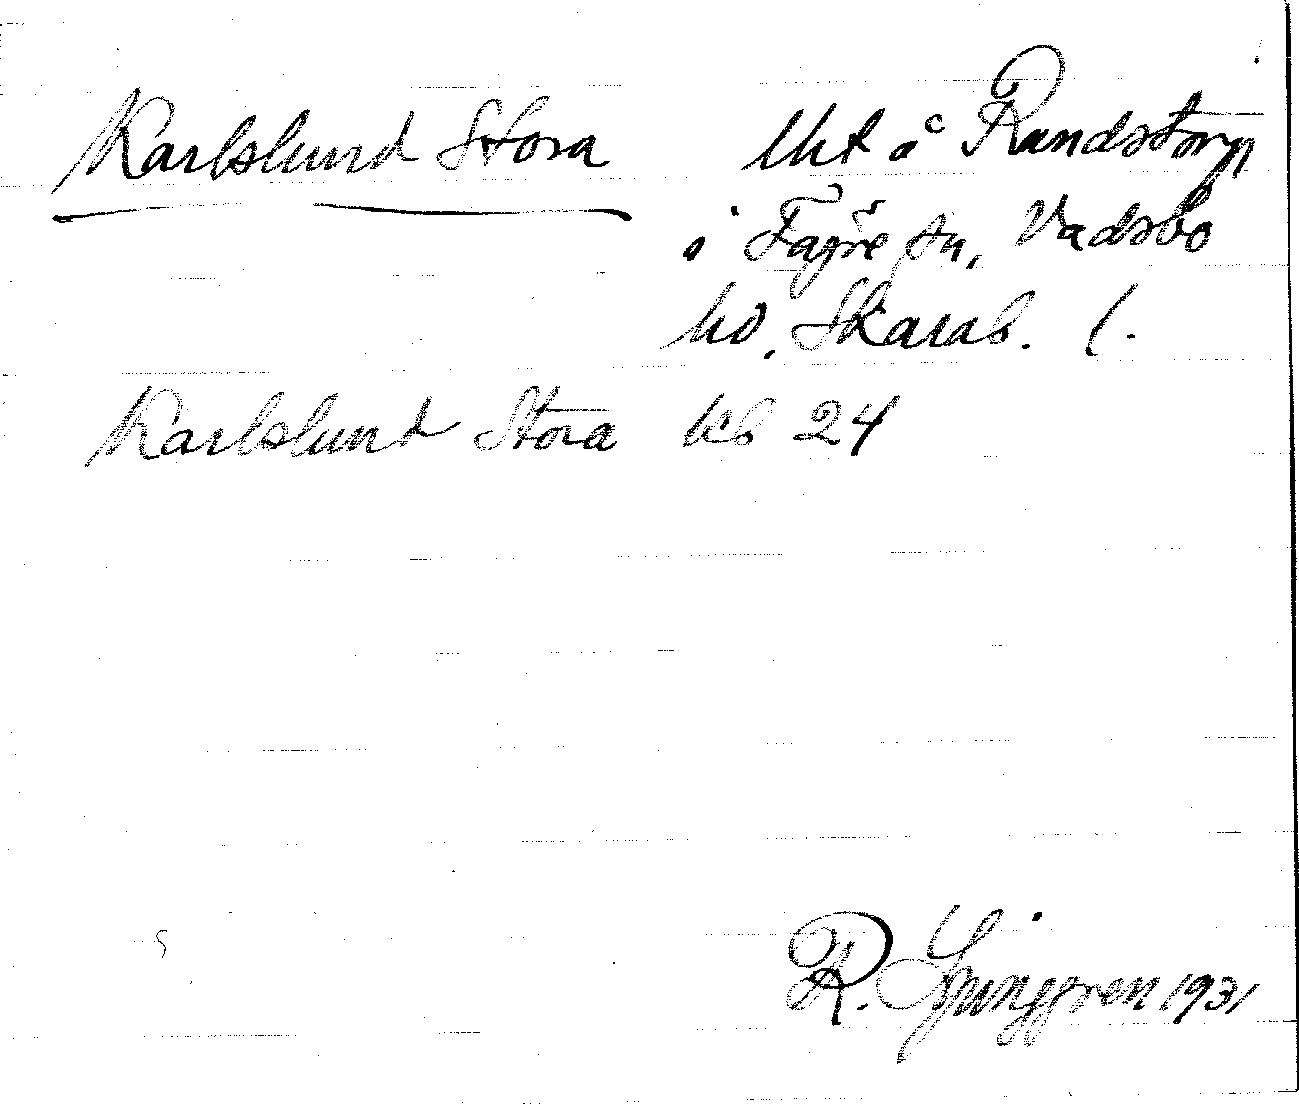 Karlslund Stora Utt å Randstorp
i Fägre sn, Vadsbo
hd, Skarab. l.
Karlslund Stora kb 24
R. Ljunggren 1931